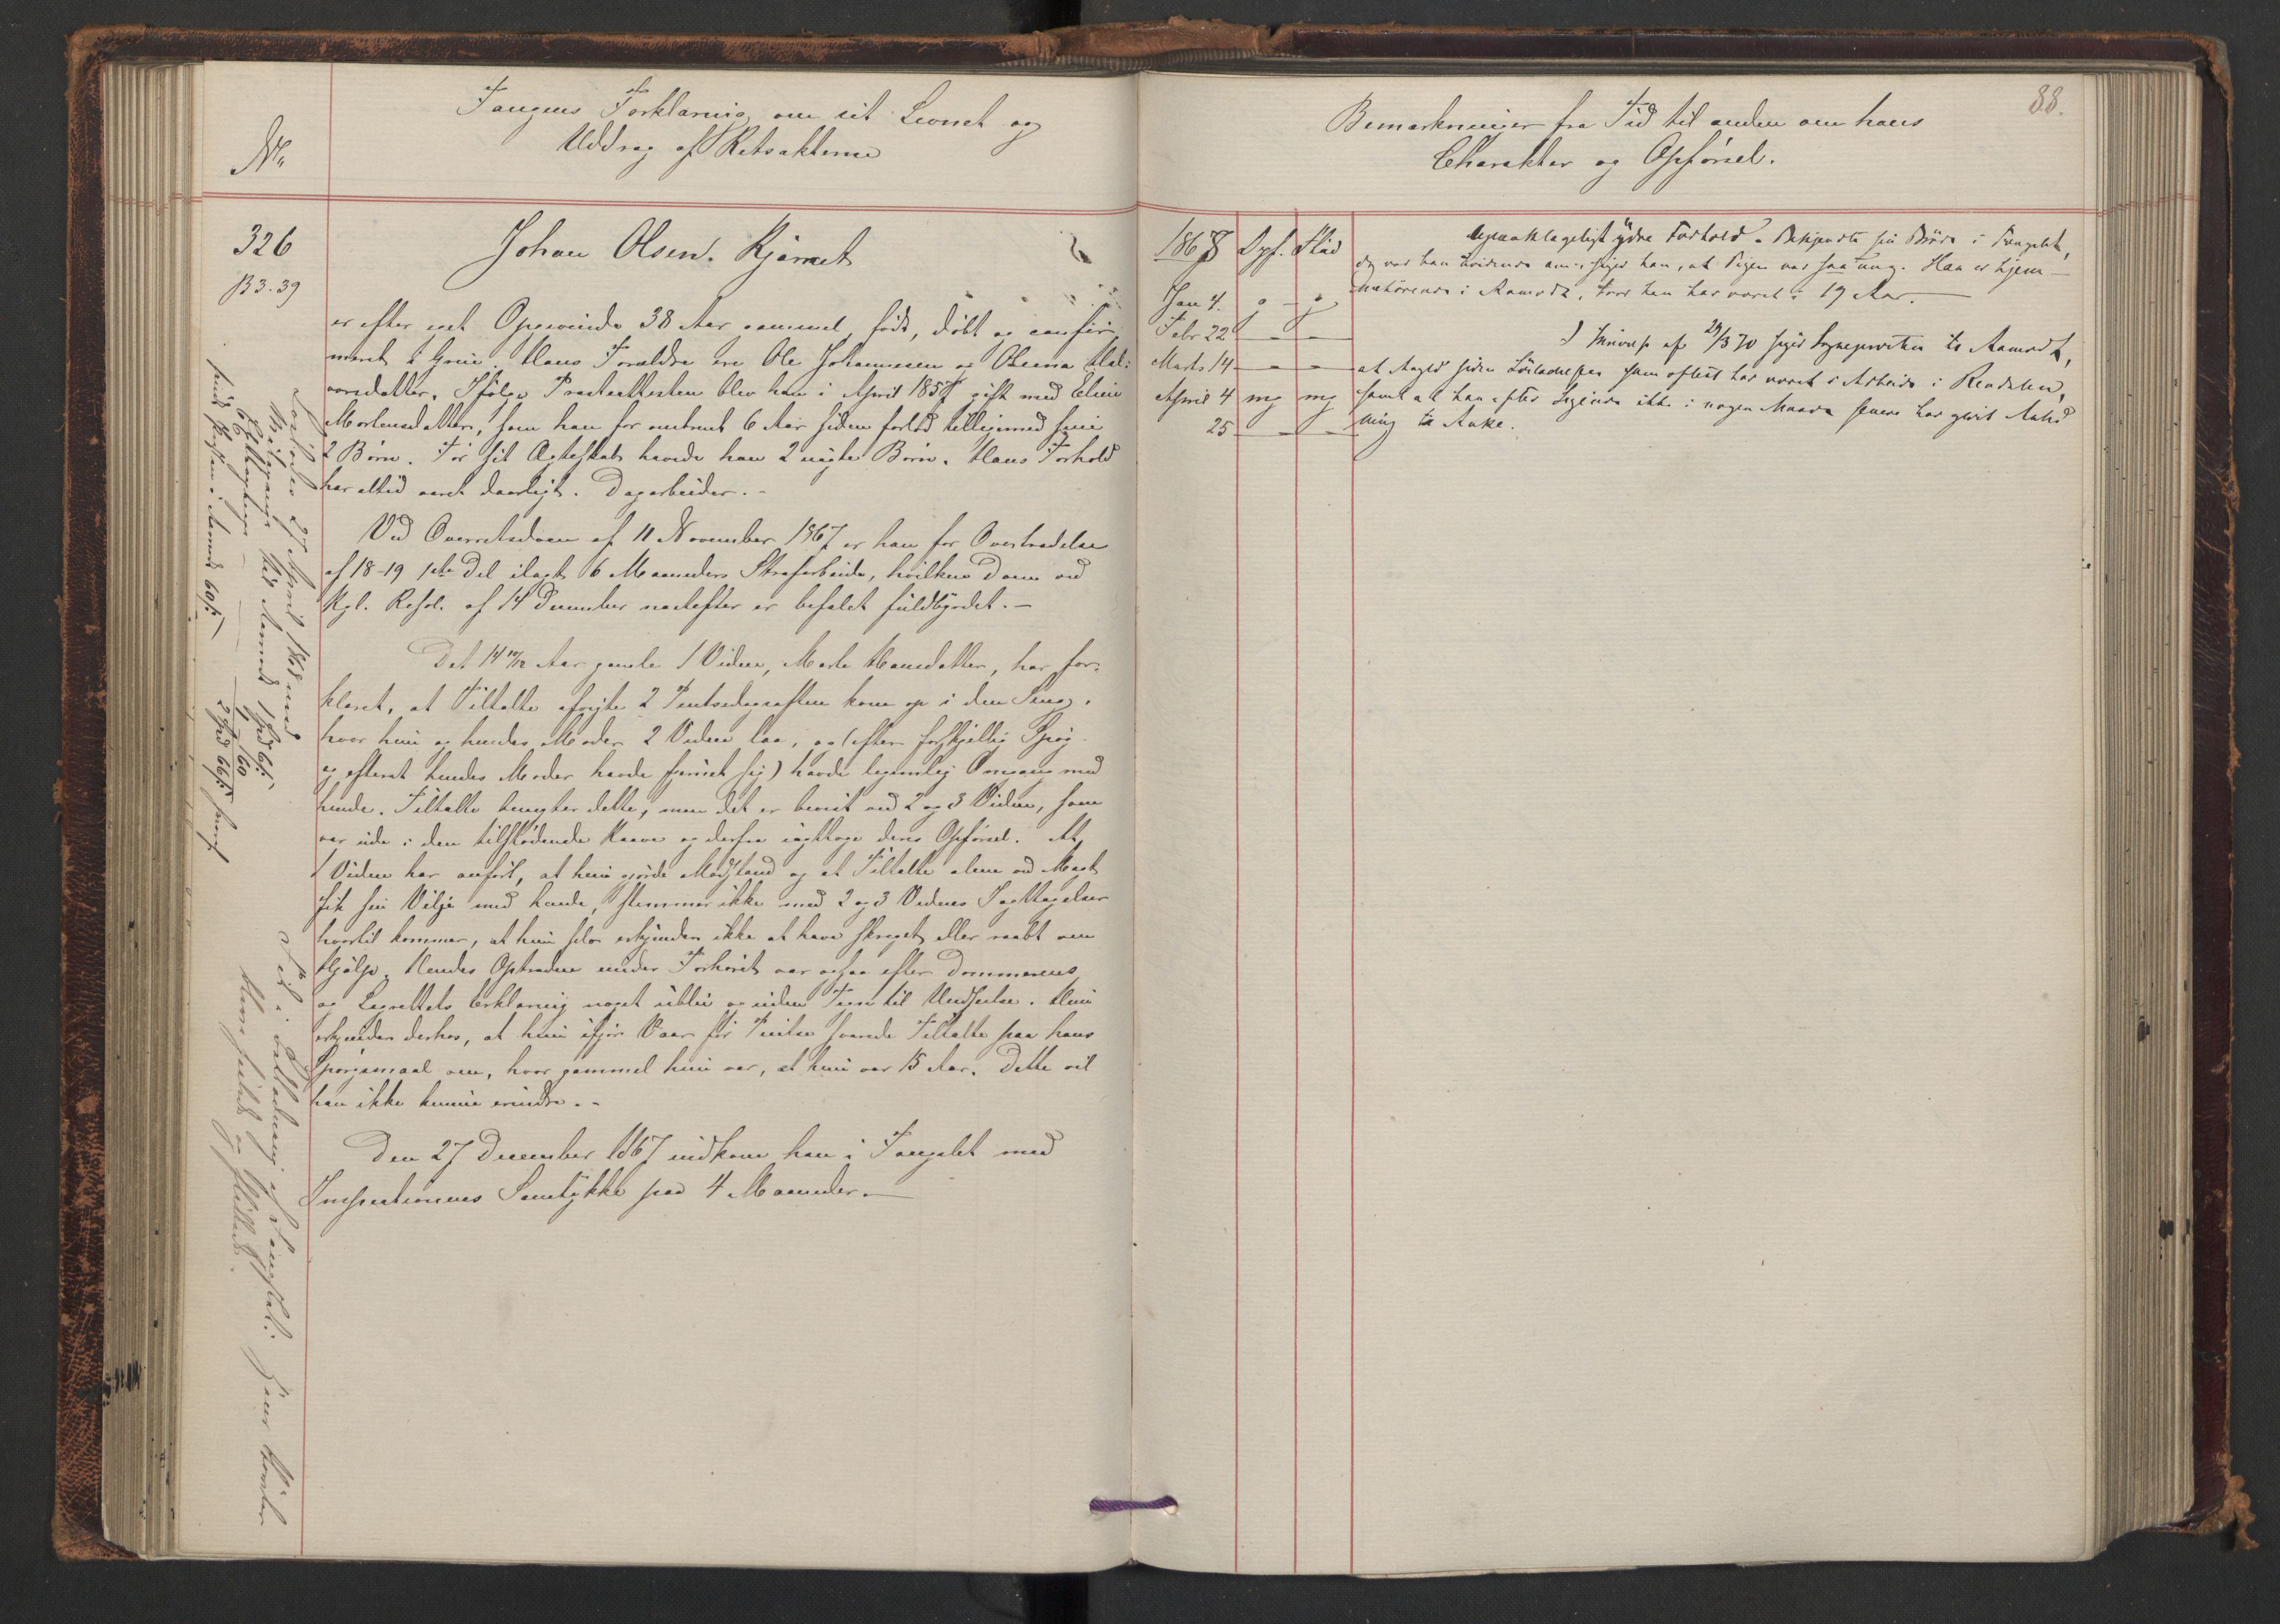 Fangens Forklaring om sit Levnet og
Uddrag af Retsakterne
No.
326
B 3. 39
Johan Olsen Kjernet
er efter eget Opgivende 38 Aar gammel, født, døbt og confir-
meret i Grue. Hans Forældre ere Ole Johannesen og Olena Hal-
vorsdatter. Ifølge Præsteattesten blev han i April 1857 gift med Eline
Mortensdatter, som han for omtrent 6 Aar siden forlod tilligemed sine
2 Børn. Før sit Ægteskab havde han 2 uægte Børn. Hans Forhold
har altid været daarligt. Dagarbeider.-
Ved Overretsdom af 11 November 1867 er han for Overtrædelse
af 18-19 1ste Del ilagt 6 Maaneders Strafarbeide, hvilken Dom ved
Kgl. Resol. af 14 December næstefter er befalet fuldbyrdet.-
Det 14 10/12 Aar gamle 1 Vidne, Marte Hansdatter, har for-
klaret, at Tiltalte afvigte 2 Pintsedagsaften kom op i den Seng,
hvor hun og hendes Moder 2 Vidne laa, og (efter forskjellig Spøg
og efterat hendes Moder havde fjernet sig) havde legemlig Omgang med
hende. Tiltalte benegter dette, men det er bevist ved 2 og 3 Vidne, som
var inde i den tilstødende Kove og derfra iagttoge deres Opførsel. At
1 Vidne har anført, at hun gjorde Modstand og at Tiltalte alene ved Magt
fik sin Vilje med hende, stemmer ikke med 2 og 3 Vidnes Iagttagelser
hvortil kommer, at hun selv erkjender ikke at have skreget eller raabt om
Hjælp. Hendes Optræden under Forhøret var ogsaa efter Dommerens
og Lagrettets Erklæring noget ublu og uden Tegn til Undseelse. Hun
erkjender derhos, at hun ifjor Vaar før Pintse svarede Tiltalte paa hans
Spørgsmaal om, hvor gammel hun var, at hun var 15 Aar. Dette vil
han ikke kunne erindre.-
Den 27 December 1867 indkom han i Fangslet med
Inspectionens Samtykke paa 4 Maaneder.-
Løslodes 27 April 1868 med
til Aamodt 1 Spd 6 ß
1 " 60
2 Spd 66 ß
i Aamodt 60 ß
88.
Bemærkninger fra Tid til anden om hans
Charakter og Opførsel.
1868 Opf. Flid
Jan 4. g - g
Febr 22 - -
Marts 14 - -
April 4 mg mg
25 - -
Upaaklageligt ydre Forhold. Beskjende sin Brøde i Fængslet,
dog var han uvidende om, siger han, at Pigen var saa ung. Han er hjem-
mehørende i Aamodt, hvor han har været i 19 Aar.-
I Skrivelse af 29/3 70 siger Sognepresten til Aamodt,
at Anged. siden Løsladelsen som oftest har været i Arbeide i Rendalen,
samt at han efter Sigende ikke i nogen Maade senere har givet Anled
ning til Anke.